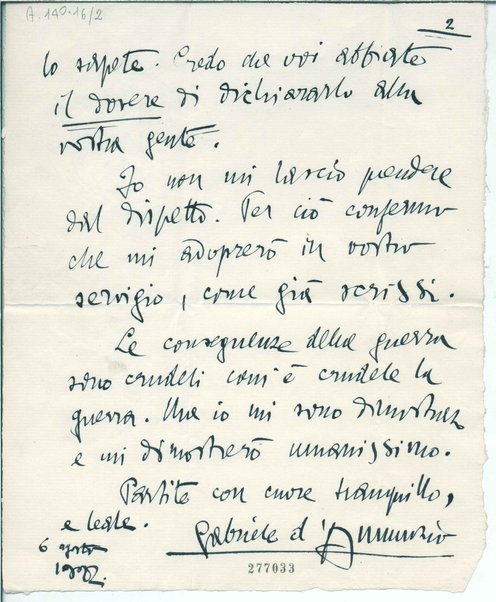 A. 140.16/2
2
lo sapete. Credo che voi abbiate
il dovere di dichiararlo alla
vostra gente.
Io non mi lascio prendere
dal dispetto. Per ciò confermo
che mi adoprerò in vostro
servigio, come già scrissi.
Le conseguenze della guerra
sono crudeli com'è crudele la
guerra. Ma io mi sono dimostrato
e mi dimostrerò umanissimo.
Partite con cuore tranquillo,
e leale.
Gabriele d'Annunzio
6 agosto
277033